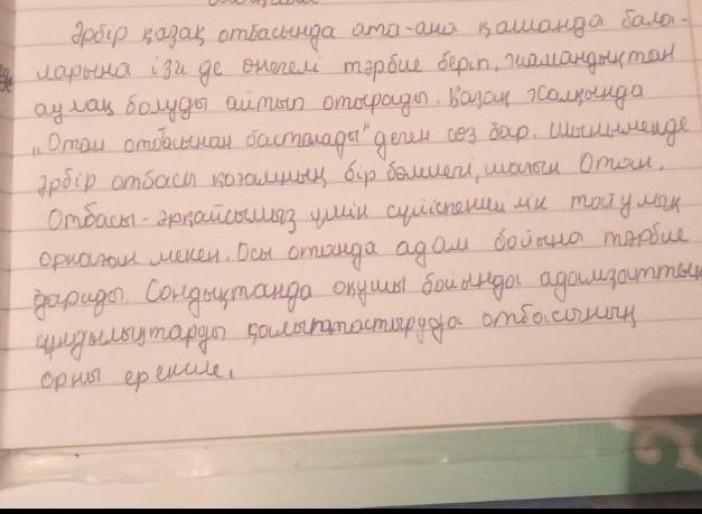 Әрбір қазақ отбасында ата-ана қашанда бала-
ларына ізгі де өнегелі тәрбие беріп, жамандықтан
аулақ болуды айтып отырады. Қазақ халқында
"Отан отбасынан басталады" деген сөз бар. Шынымен де
әрбір отбасы қоғамның бір бөлшегі, шағын Отан.
Отбасы - әрқайсымыз үшін сүйіспеншілік
орнаған мекен. Осы отанда адам бойына тәрбие
дариды. Сондықтанда оқушы бойында адамзаттың
құндылықтарды қалыптастыруда отбасының
орны ерекше.